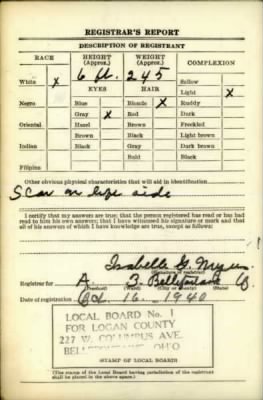 REGISTRAR'S REPORT
DESCRIPTION OF REGISTRANT
RACE HEIGHT (Approx.) WEIGHT (Approx.) COMPLEXION
6 ft. 245 Sallow
White X EYES HAIR Light X
Negro Blue Blonde X Ruddy
Gray X Red Dark
Oriental Hazel Brown Freckled
Brown Black Light brown
Indian Black Gray Dark brown
Bald Black
Filipino
Other obvious physical characteristics that will aid in identification
Scar on left side
I certify that my answers are true; that the person registered has read or has had
read to him his own answers; that I have witnessed his signature or mark and that
all of his answers of which I have knowledge are true, except as follows:
Isabelle G. Myers
(Signature of registrar)
Registrar for A. 3 Bellefontaine O.
(Precinct) (Ward) (City or county) (State)
Date of registration Oct. 16 - 1940
LOCAL BOARD No. 1
FOR LOGAN COUNTY
227 W. COLUMBUS AVE.
BELLEFONTAINE, OHIO
(STAMP OF LOCAL BOARD)
(The stamp of the Local Board having jurisdiction of the registrant
shall be placed in the above space.)